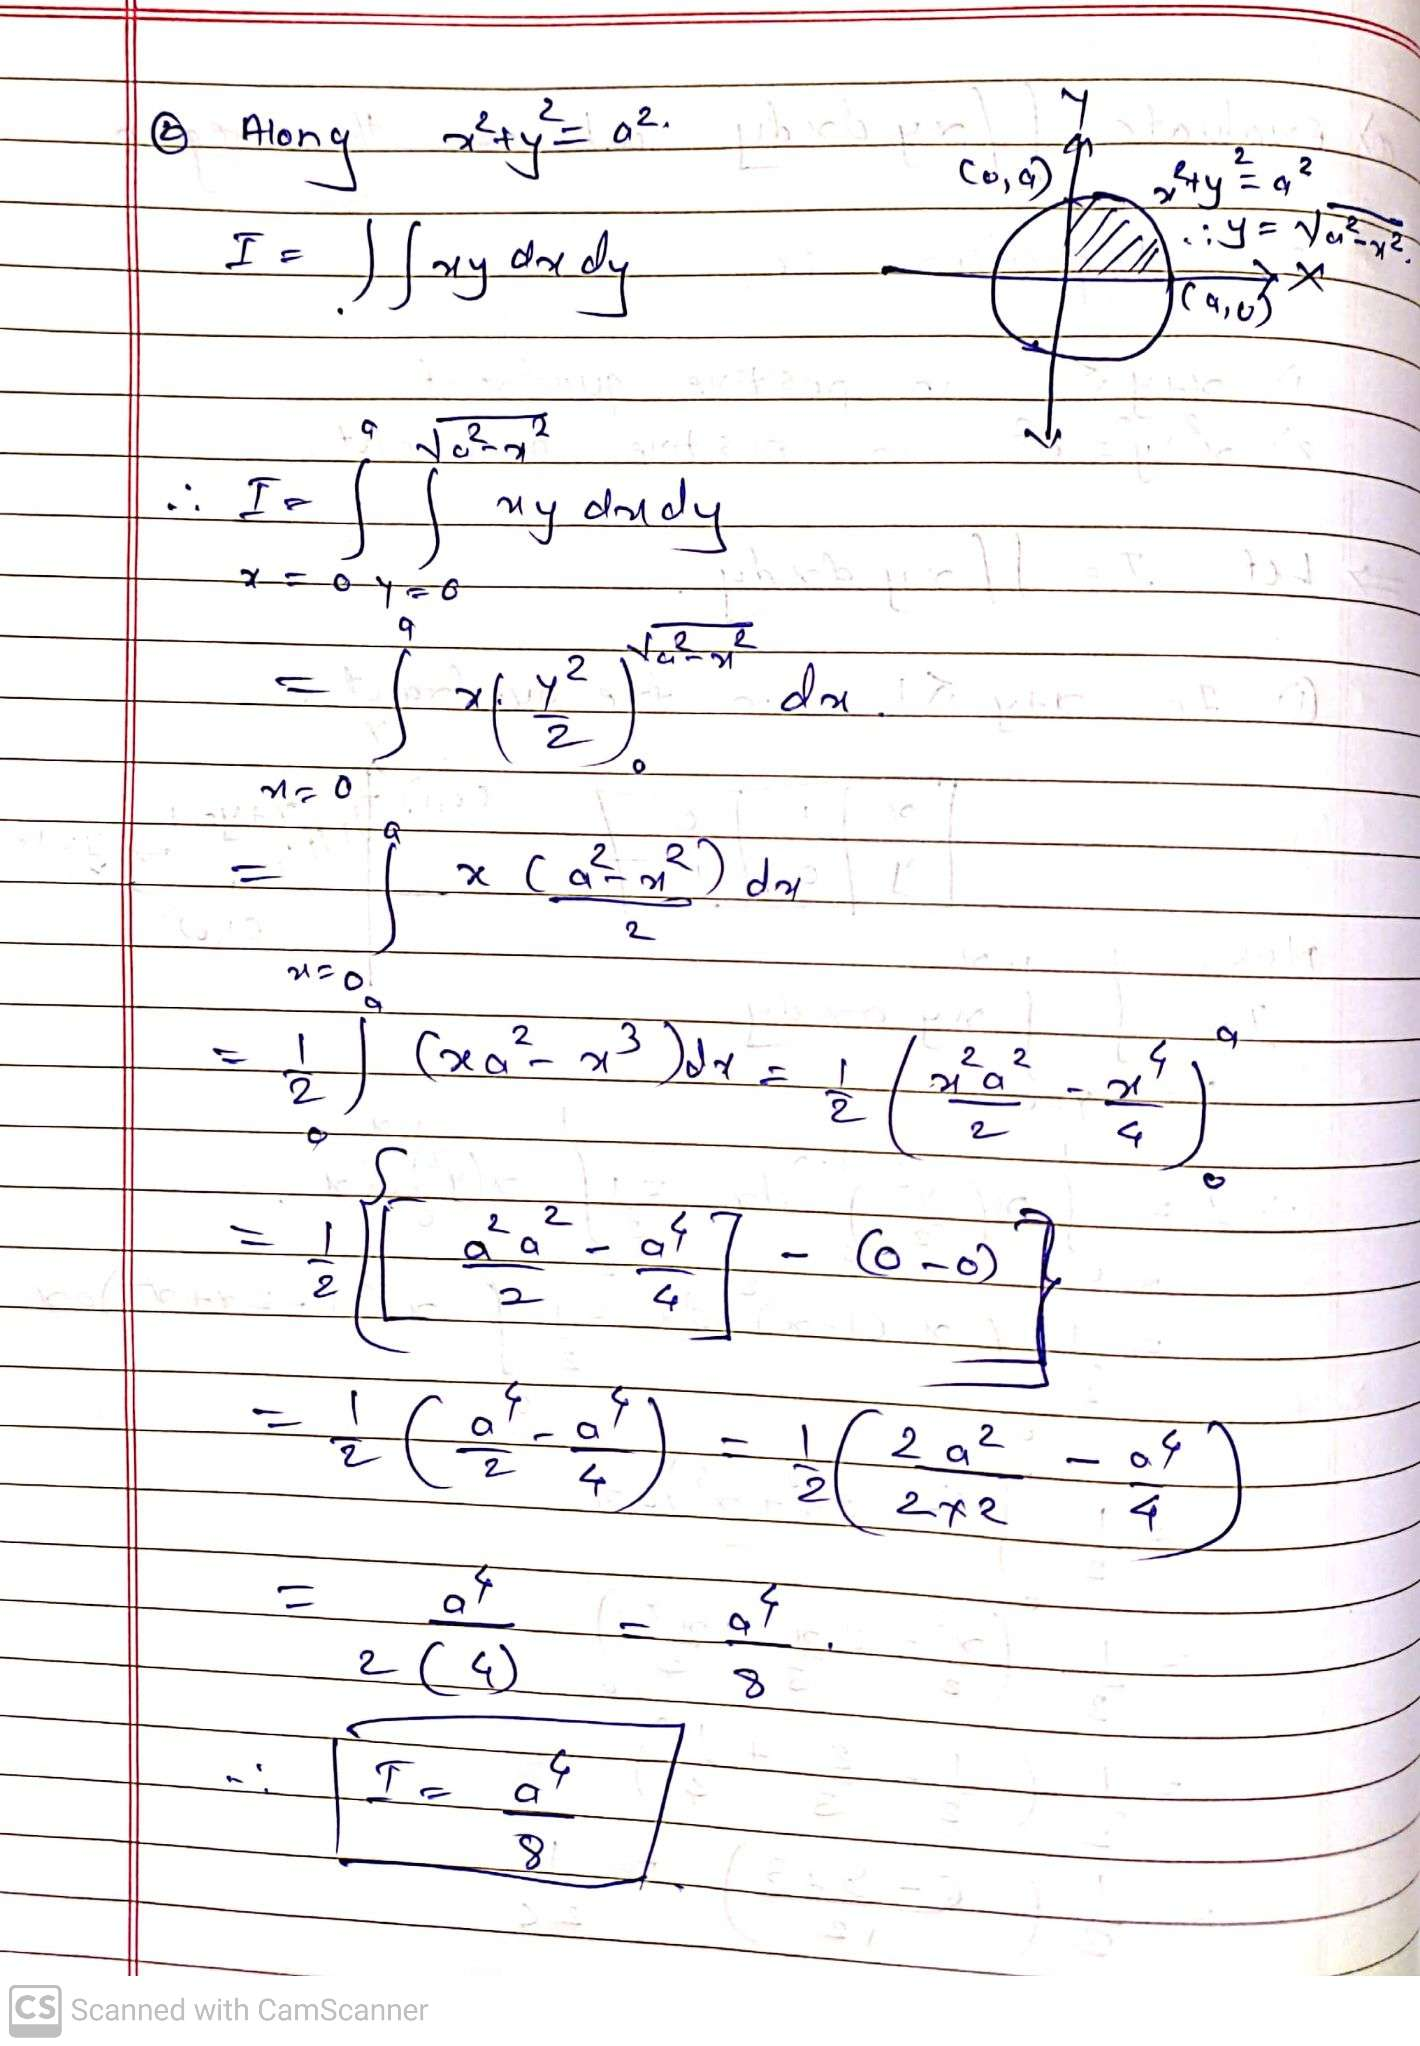 ② Along x²+y²= a².
Y
(0,a)
x²+y²= a²
∴ y = √a²-x².
X
(a,0)
I = ∫∫ xy dx dy
∴ I = ∫_{x=0}^{a} ∫_{y=0}^{√a²-x²} xy dx dy
= ∫_{x=0}^{a} x( y²/2 )_{0}^{√a²-x²} dx.
= ∫_{x=0}^{a} x (a²-x²)/2 dx
= 1/2 ∫_{0}^{a} (xa²- x³)dx = 1/2 ( x²a²/2 - x⁴/4 )_{0}^{a}
= 1/2 {[ a²a²/2 - a⁴/4 ] - (0-0)}
= 1/2 ( a⁴/2 - a⁴/4 ) = 1/2 ( 2a²/2×2 - a⁴/4 )
= a⁴/2(4) = a⁴/8.
∴ I = a⁴/8
CS Scanned with CamScanner